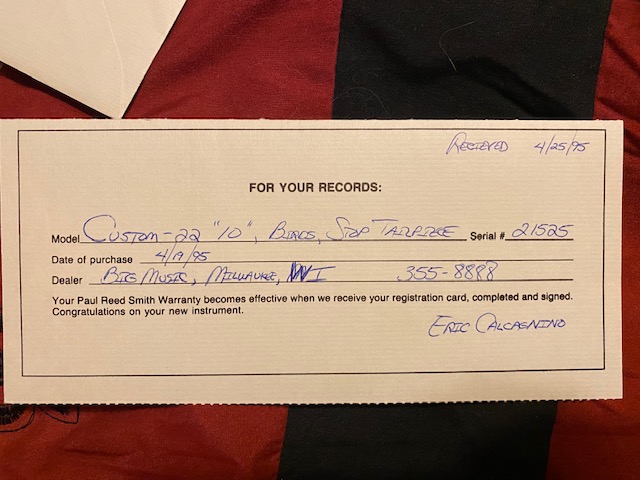 RECIEVED 4/25/95
FOR YOUR RECORDS:
Model CUSTOM-22 "10", BIRDS, STOP TAILPIECE Serial # 21525
Date of purchase 4/19/95
Dealer BIG MUSIC, MILWAUKEE, WI 355-8888
Your Paul Reed Smith Warranty becomes effective when we receive your registration card, completed and signed.
Congratulations on your new instrument.
ERIC CALCAGNINO